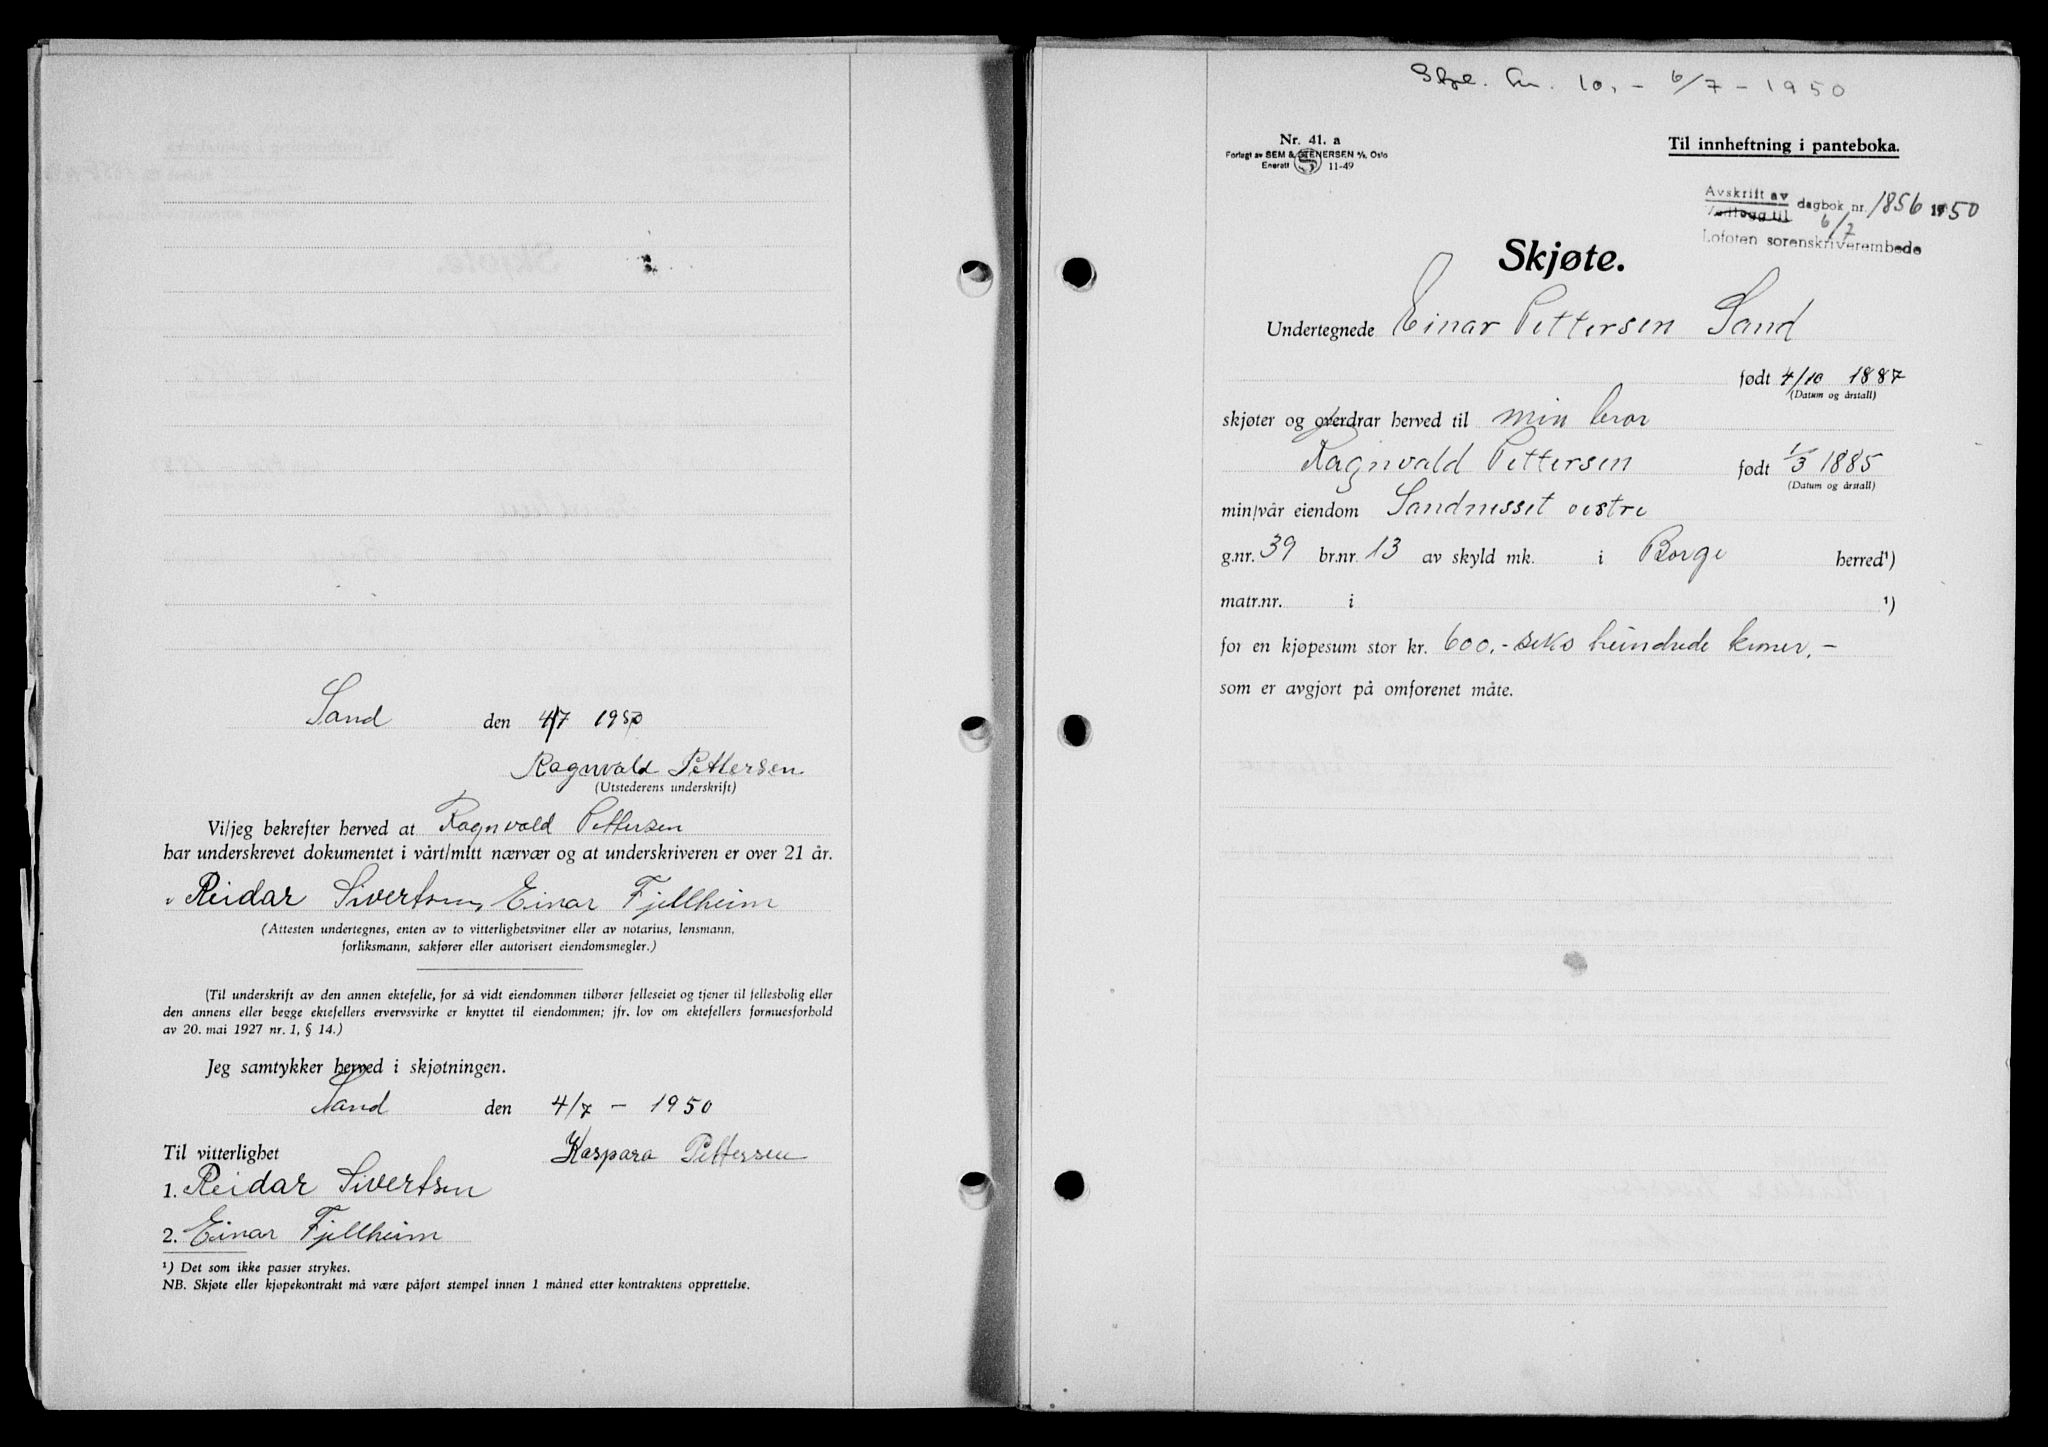 Sand den 4/7 1950
Ragnvald Pettersen
(Utstederens underskrift)
Vi/jeg bekrefter herved at Ragnvald Pettersen
har underskrevet dokumentet i vårt/mitt nærvær og at underskriveren er over 21 år.
Reidar Sivertsen, Einar Fjellheim
(Attesten undertegnes, enten av to vitterlighetsvitner eller av notarius, lensmann,
forliksmann, sakfører eller autorisert eiendomsmegler.)
(Til underskrift av den annen ektefelle, for så vidt eiendommen tilhører felleseiet og tjener til fellesbolig eller
den annens eller begge ektefellers ervervsvirke er knyttet til eiendommen; jfr. lov om ektefellers formuesforhold
av 20. mai 1927 nr. 1, § 14.)
Jeg samtykker herved i skjøtningen.
Sand den 4/7 - 1950
Til vitterlighet Kaspara Pettersen
1. Reidar Sivertsen
2. Einar Fjellheim
¹) Det som ikke passer strykes.
NB. Skjøte eller kjøpekontrakt må være påført stempel innen 1 måned etter kontraktens opprettelse.
10,- 6/7 - 1950
Nr. 41. a
Forlagt av SEM & STENERSEN A/S, Oslo
Enerett S 11-49
Til innheftning i panteboka.
Avskrift av
Vedlegg til dagbok nr. 1856 1950
6/7
Lofoten sorenskriverembede
Skjøte.
Undertegnede Einar Pettersen Sand
født 4/10 1887
(Datum og årstall)
skjøter og overdrar herved til min bror
Ragnvald Pettersen født 1/3 1885
(Datum og årstall)
min/vår eiendom Sandnesset vestre
g.nr. 39 br.nr. 13 av skyld mk. i Borge herred¹)
matr.nr. i ¹)
for en kjøpesum stor kr. 600,- seks hundrede kroner,-
som er avgjort på omforenet måte.